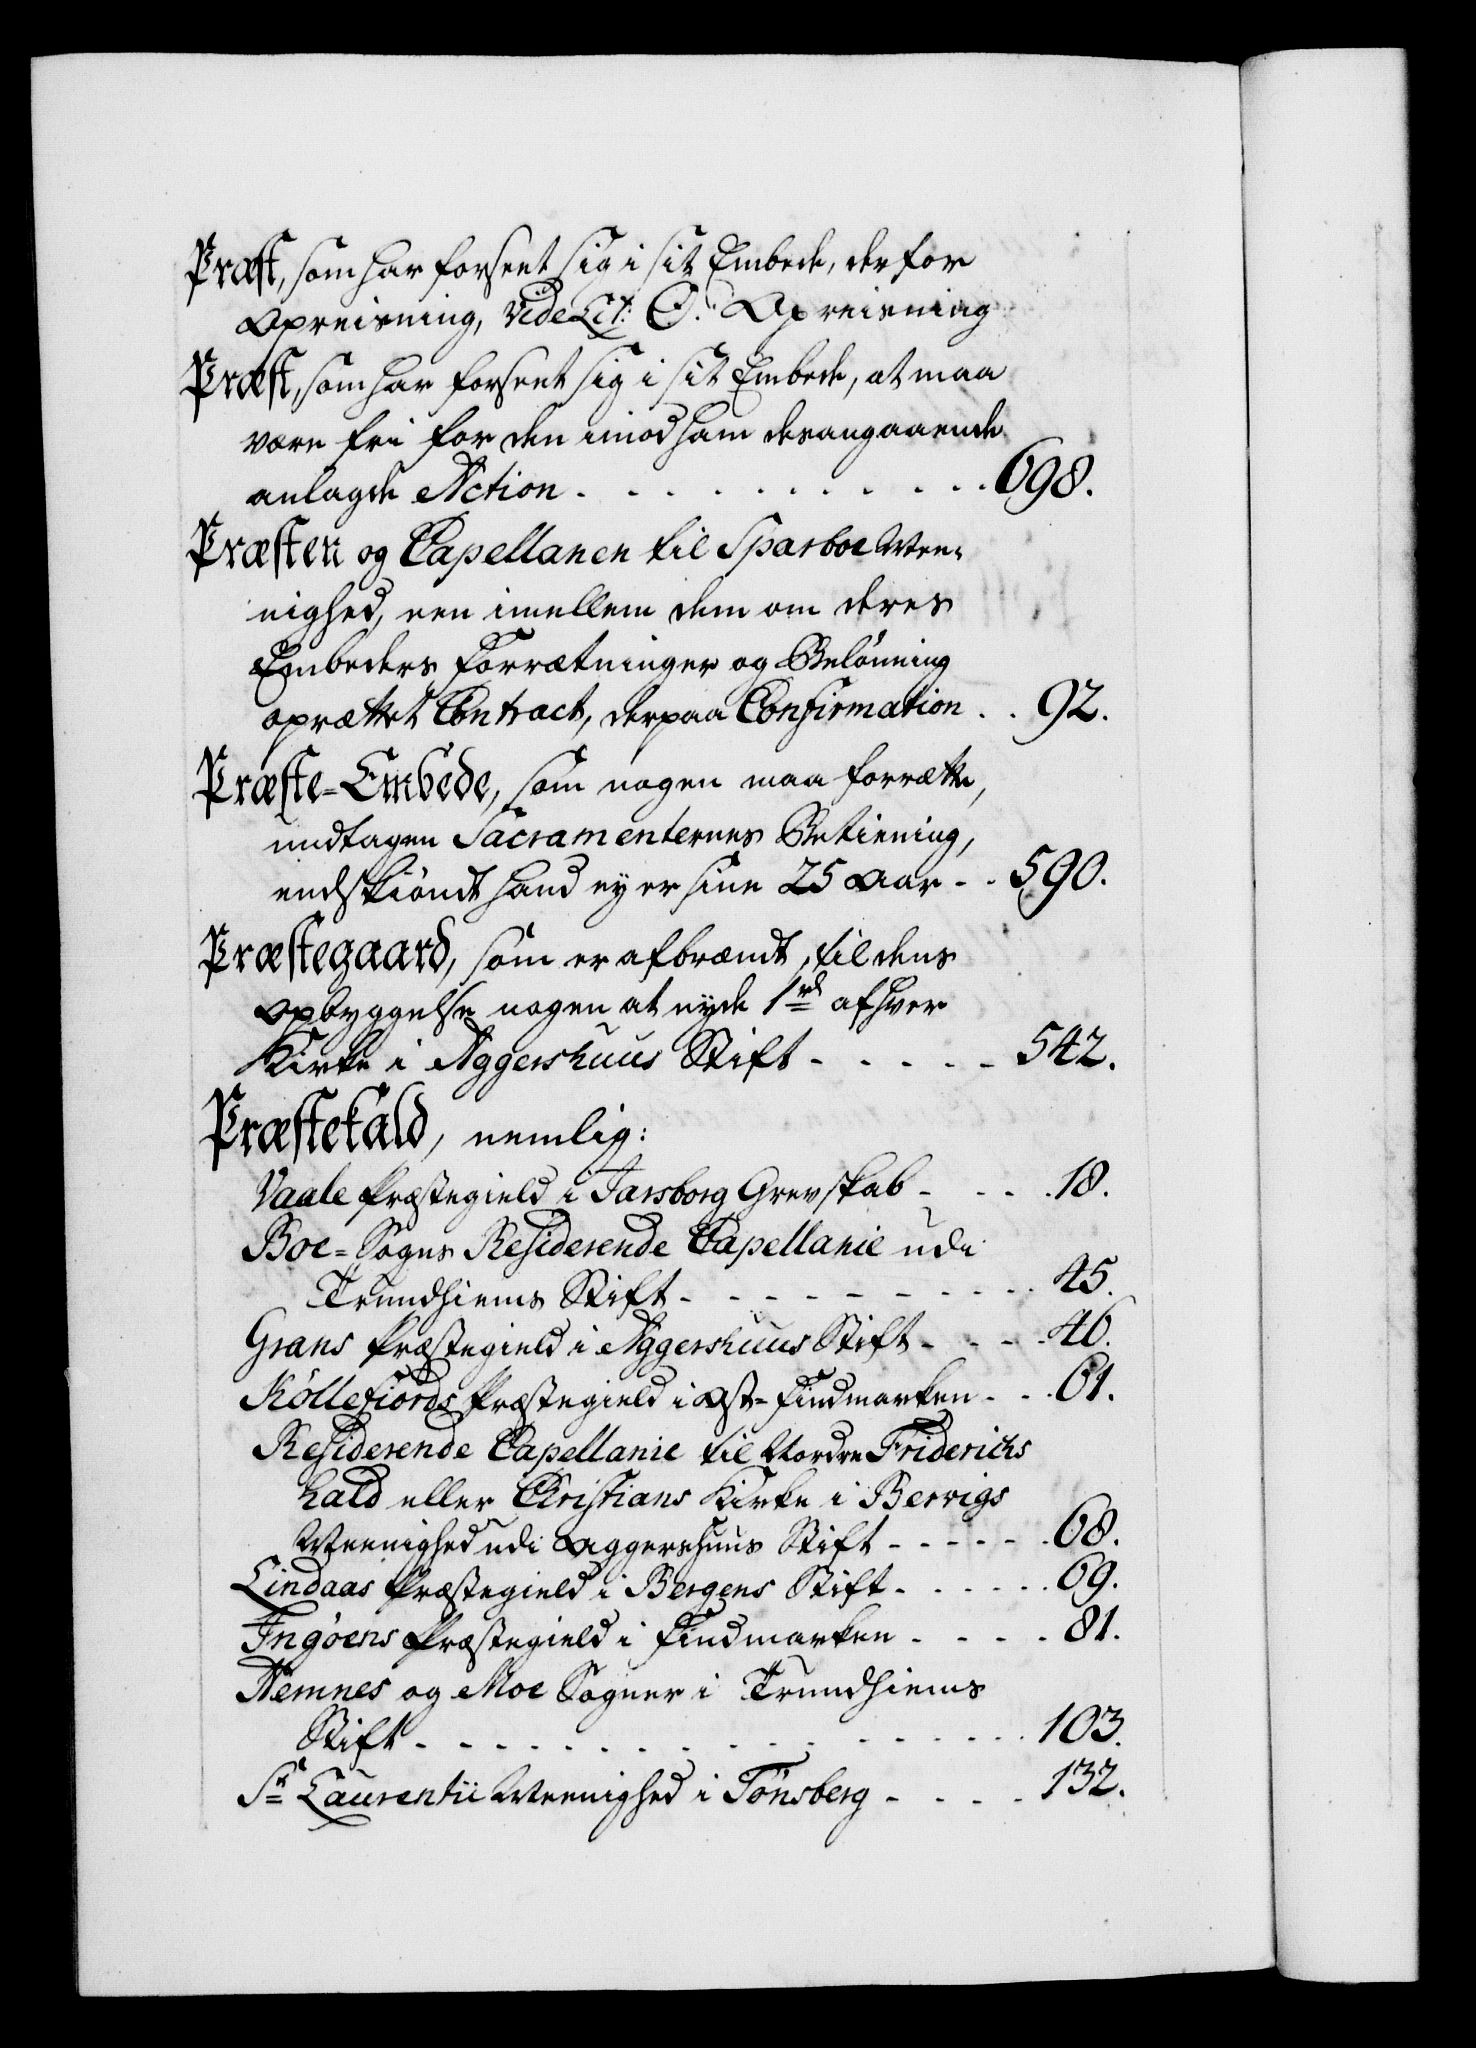 Præst, som har forseet sig i sit Embede, derfor
Opreisning, Vide Lit: O. Opreisning
Præst, som har forseet sig i sit Embede, at maa
være fri for den imod ham desangaaende
anlagde Action . . . . . . . . . . 698.
Præsten og Capellanen til Sparboe Mee-
nighed, een imellem dem om deres
Embeders Forrætninger og Belønning
oprættet Contract, derpaa Confirmation . . 92.
Præste-Embede, som nogen maa forrætte,
undtagen Sacramenternes Betiening,
endskiøndt hand ey er sine 25 Aar - - 590.
Præstegaard, som er afbrændt, til dens
Opbyggelse nogen at nyde 1 rd af hver
Kirke i Aggershuus Stift - - - - - 542.
Præstekald, nemlig:
Vaale Præstegield i Jarsborg Grevskab - - - . 18.
Boe-Sogns Residerende Capellanie udi
Trundhiems Stift - - - - - - - - - . . 45.
Grans Præstegield i Aggershuus Stift - - - - 46.
Køllefiords Præstegield i Ost-Findmarken - - . 61.
Residerende Capellanie til Nordre Friderichs
hald eller Christians Kirke i Berrigs
Meenighed udi Aggershuus Stift - - - - - . 68.
Lindaas Præstegield i Bergens Stift - - - - . . 69.
Ingøens Præstegield i Findmarken - - - . 81.
Nemnes og Moe Sogner i Trundhiems
Stift - - - - - - - - - - - - - - - . . 103.
St Laurentii Meenighed i Tønsberg - - - - . 132.